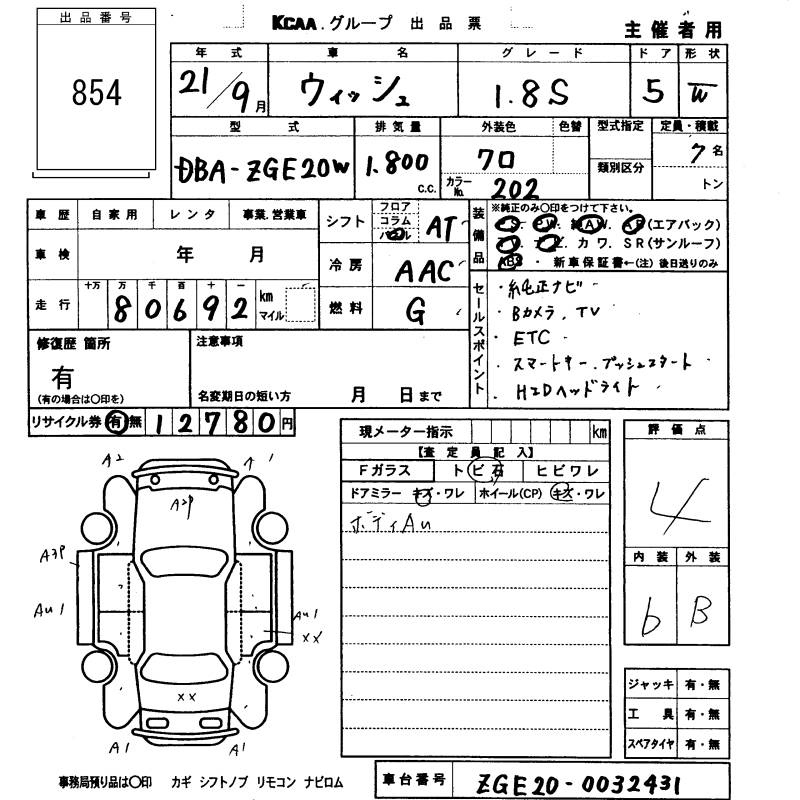 出品番号
854
KCAA.グループ 出品票
主催者用
年式 車名 グレード ドア 形状
21/9月 ウィッシュ 1.8S 5 W
型式 排気量 外装色 色替 型式指定 定員・積載
DBA-ZGE20W 1.800 c.c. クロ 類別区分 7名
カラーNo. 202 トン
車歴 自家用 レンタ 事業.営業車
シフト フロア コラム パネル AT
装備品
※純正のみ○印をつけて下さい。
P S. P W. 純A W. A B(エアバック)
T V. ナ ビ. カ ワ. S R(サンルーフ)
ABS ・ 新車保証書←(注)後日送りのみ
車検 年 月
冷房 AAC
走行 十万 万 千 百 十 一 km マイル
8 0 6 9 2
燃料 G
セールスポイント
・純正ナビ
・Bカメラ、TV
・ETC
・スマートキー、プッシュスタート
・HIDヘッドライト
修復歴 箇所
有
(有の場合は○印を)
注意事項
名変期日の短い方 月 日まで
リサイクル券 有 無 12780円
現メーター指示 km
【査定員記入】
Fガラス トビ石 ヒビワレ
ドアミラー キズ・ワレ ホイール(CP) キズ・ワレ
ボディAU
評価点
4
内装 外装
b B
A2 A1
A2P
A3P
AU1 AU1
XX
XX
A1 A1
ジャッキ 有・無
工具 有・無
スペアタイヤ 有・無
事務局預り品は○印 カギ シフトノブ リモコン ナビロム
車台番号 ZGE20-0032431